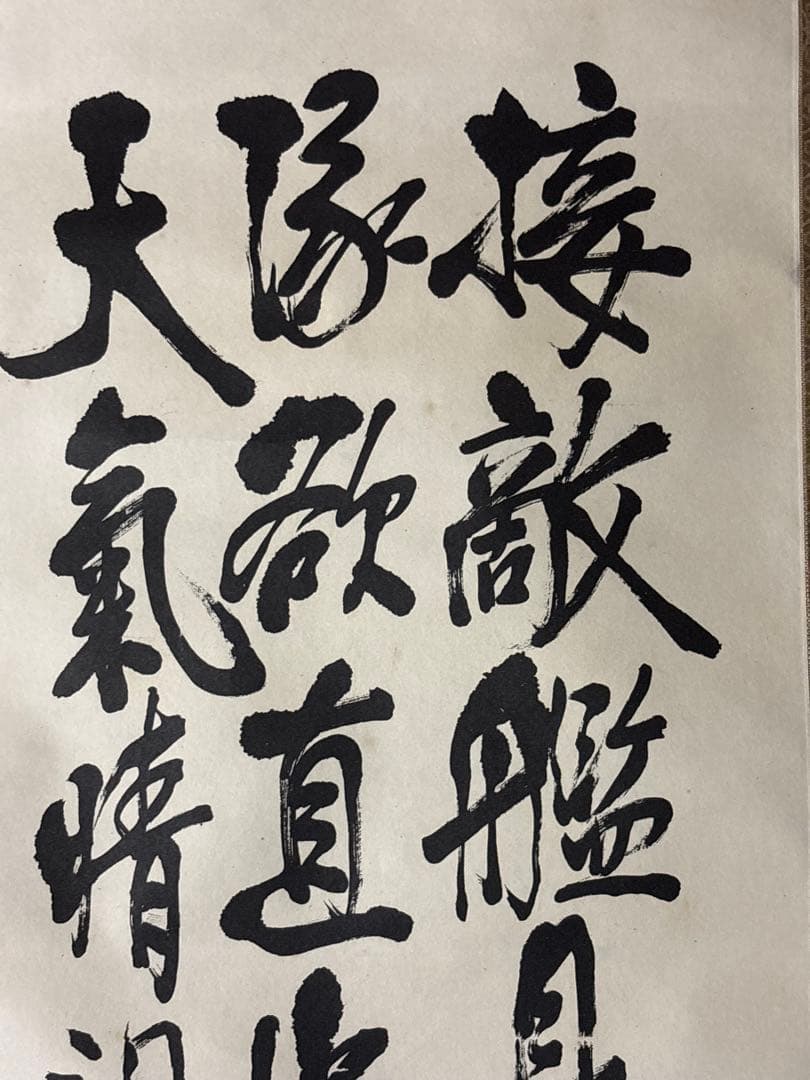 接敵艦見
隊欲直出
天氣晴朗